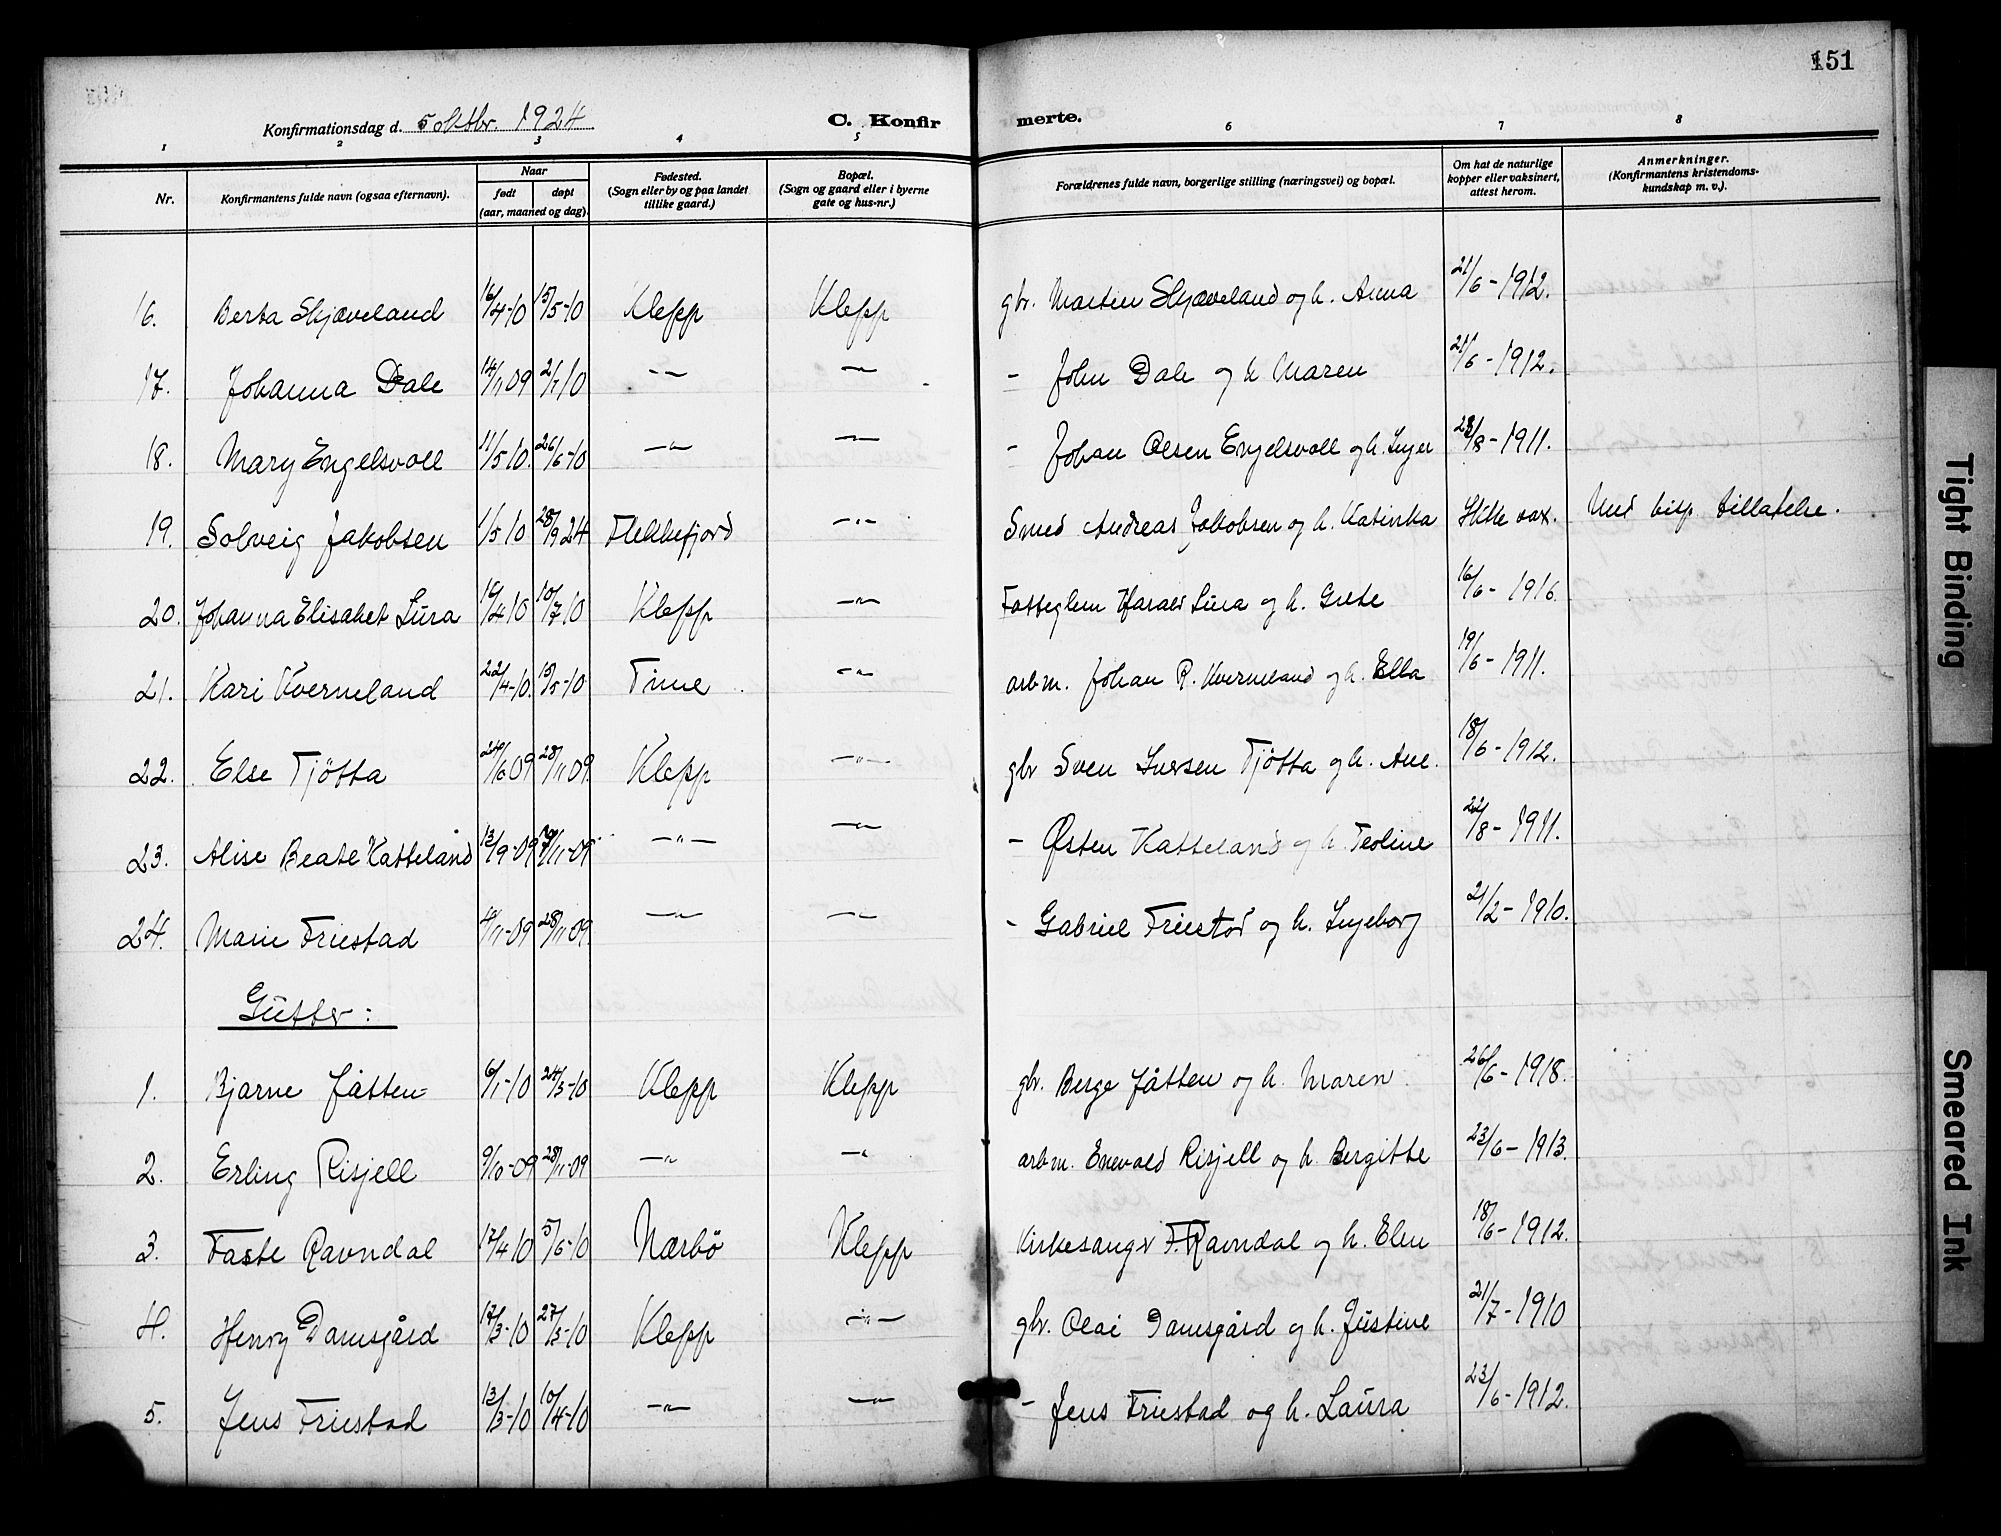 151
Konfirmationsdag d. 5 oktbr. 1924
C. Konfirmerte.
1 2 3 4 5 6 7 8
Nr. Konfirmantens fulde navn (ogsaa efternavn). Naar født døpt (aar, maaned og dag) Fødested. (Sogn eller by og paa landet tillike gaard.) Bopæl. (Sogn og gaard eller i byerne gate og hus-nr.) Forældrenes fulde navn, borgerlige stilling (næringsvei) og bopæl. Om hat de naturlige kopper eller vaksinert, attest herom. Anmerkninger. (Konfirmantens kristendoms-kundskap m. v.).
16. Berta Skjæveland 16/4-10 15/5-10 Klepp Klepp gbr. Martin Skjæveland og h. Anna 21/6-1912.
17. Johanna Dale 14/11 09 2/1 10 -"- -"- - John Dale og h Maren 21/6-1912.
18. Mary Engelsvoll 11/5-10. 26/6-10 -"- -"- - Johan Olsen Engelsvoll og h. Inger /8-1911.
19. Solveig Jakobsen 1/5 10 28/9 24 Flekkefjord -"- Smed Andreas Jakobsen og h. Katinka Ikke vax. Med bisp. tillatelse.
20. Johanna Elisabet Lura /4 10 10/7 10 Klepp -"- Harald Lura og h. Grete 16/6-1916.
21. Kari Kverneland 22/4-10. 15/5-10 Time -"- arbm. Johan R. Kverneland og h. Ella 19/6-1911.
22. Else Tjötta 24/6 09 28/11 09 Klepp -"- gbr Sven Iversen Tjötta og h. Ane. 18/6-1912.
23. Alise Beate Katteland 13/9-09 /11-09 -"- -"- - Østen Katteland og h. Teoline 22/8-1911.
24. Marie Friestad 4/11-09 28/11 09. -"- -"- - Gabriel Friestad og h. Ingeborg 21/2-1910.
Gutter:
1. Bjarne Jåtten 6/1-10 24/3-10 Klepp Klepp gbr. Berge Jåtten og h. Maren 26/6-1918.
2. Erling Risjell 9/10-09 28/11-09 -"- -"- arbm. Enevald Risjell og h. Bergitte 23/6-1913.
3. Taste Ravndal 17/4 10 5/6-10 Nærbö Klepp Kirkesanger T. Ravndal og h. Elen 18/6-1912.
4. Henry Damsgård 17/3-10 27/3-10 Klepp -"- gbr. Olai Damsgård og h. Justine 21/7-1910
5. Jens Friestad 13/3-10 10/4-10 -"- -"- - Jens Friestad og h. Laura 23/6-1912.
Tight Binding
Smeared Ink